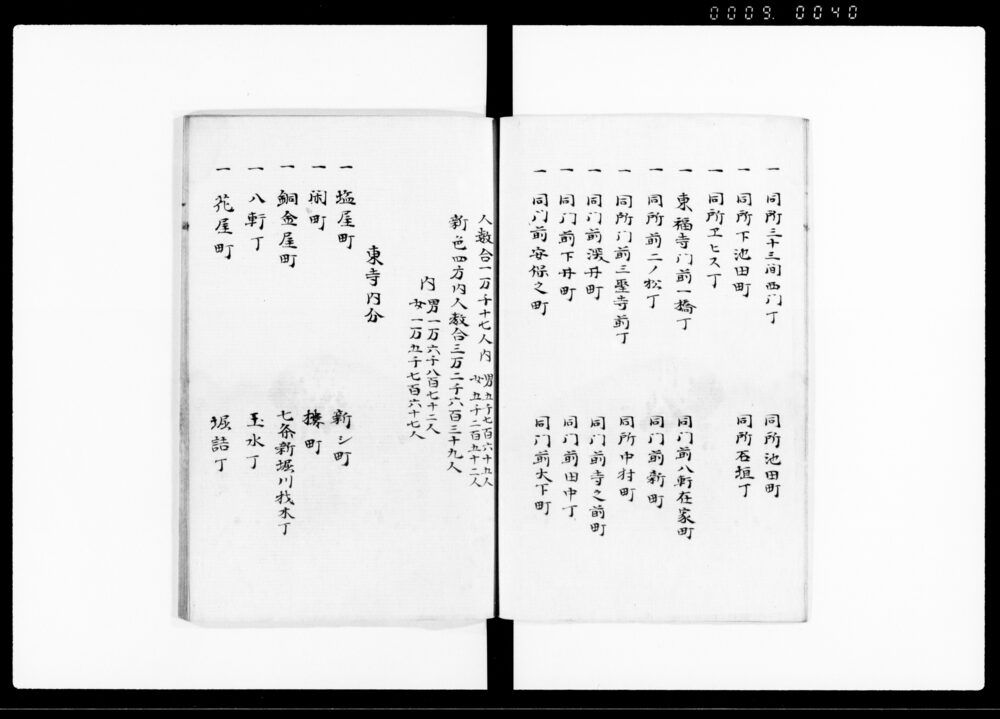 0009. 0040
一 同所三十三间西门丁　同所池田町
一 同所下池田町　同所石垣丁
一 同所ヱヒス丁
一 東福寺门前一橋丁　同门前八軒在家町
一 同所前二ノ松丁　同门前新町
一 同所门前三聖寺前丁　同所中村町
一 同门前深井町　同门前寺之前町
一 同门前下井町　同门前田中丁
一 同门前安保之町　同门前大下町
人数合一万千十七人内 男五千七百六十五人
女五千二百五十二人
新色四方内人数合三万二千六百三十九人
内 男一万六千八百七十二人
女一万五千七百六十七人
東寺内分
一 塩屋町　新シ町
一 閑町　町
一 銅金屋町　七条新堀川材木丁
一 八軒丁　玉水丁
一 花屋町　堀詰丁